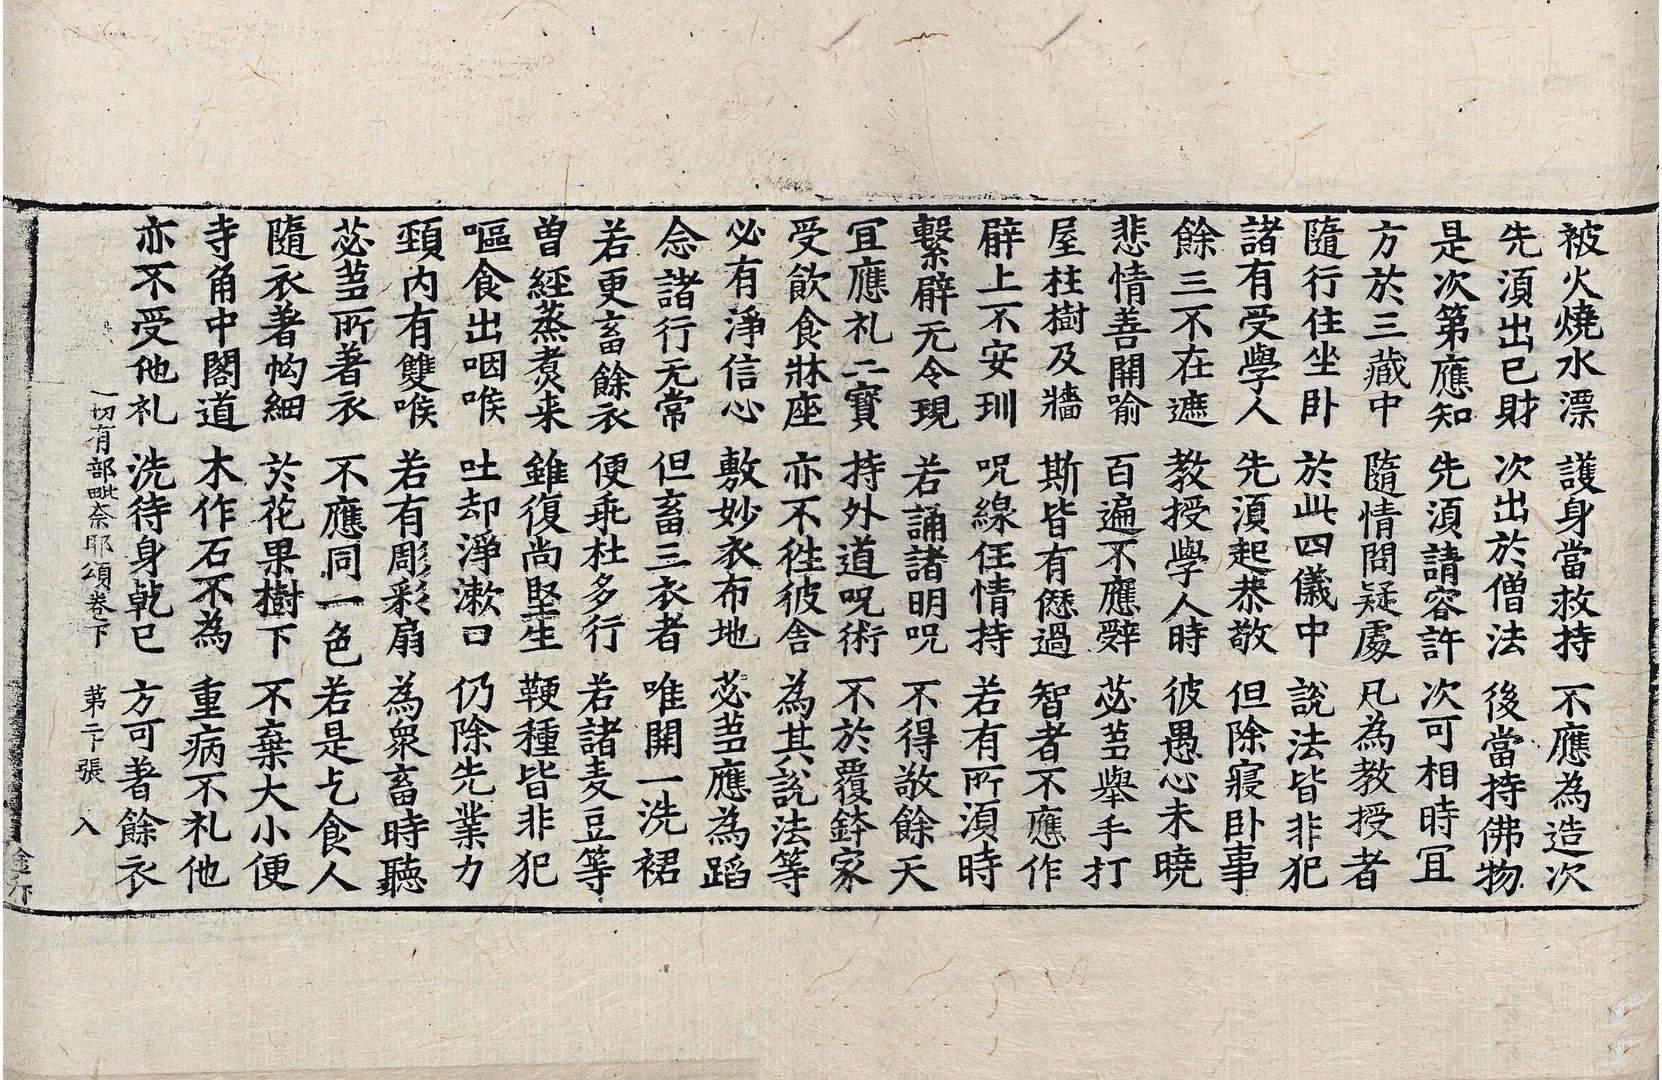 被火燒水漂 護身當救持 不應為造次
先湏出已財 次出於僧法 後當持佛物
是次第應知 先湏請容許 次可相時冝
方於三藏中 隨情問疑處 凡為教授者
隨行住坐卧 於此四儀中 說法皆非犯
諸有受學人 先湏起恭敬 但除寢卧事
餘三不在遮 教授學人時 彼愚心未曉
悲情善開喻 百遍不應辤 苾蒭舉手打
屋柱樹及牆 斯皆有愆過 智者不應作
臂上不安玔 呪線任情持 若有所湏時
繫臂无令現 若誦諸明呪 不得敬餘天
冝應礼二寳 持外道呪術 不於覆鉢家
受飲食牀座 亦不徃彼舍 為其說法等
必有淨信心 敷妙衣布地 苾蒭應為蹈
念諸行无常 但畜三衣者 唯開一洗裙
若更畜餘衣 便乖杜多行 若諸麦豆等
曽經蒸煑来 雖復尚堅生 鞕種皆非犯
嘔食出咽喉 吐却淨漱口 仍除先業力
頸内有雙喉 若有彫彩扇 為衆畜時聽
苾蒭所著衣 不應同一色 若是乞食人
隨衣著㡓細 於花果樹下 不棄大小便
寺角中閣道 木作石不為 重病不礼他
亦不受他礼 洗待身乾已 方可著餘衣
一切有部毗奈耶頌卷下 第二十張 入